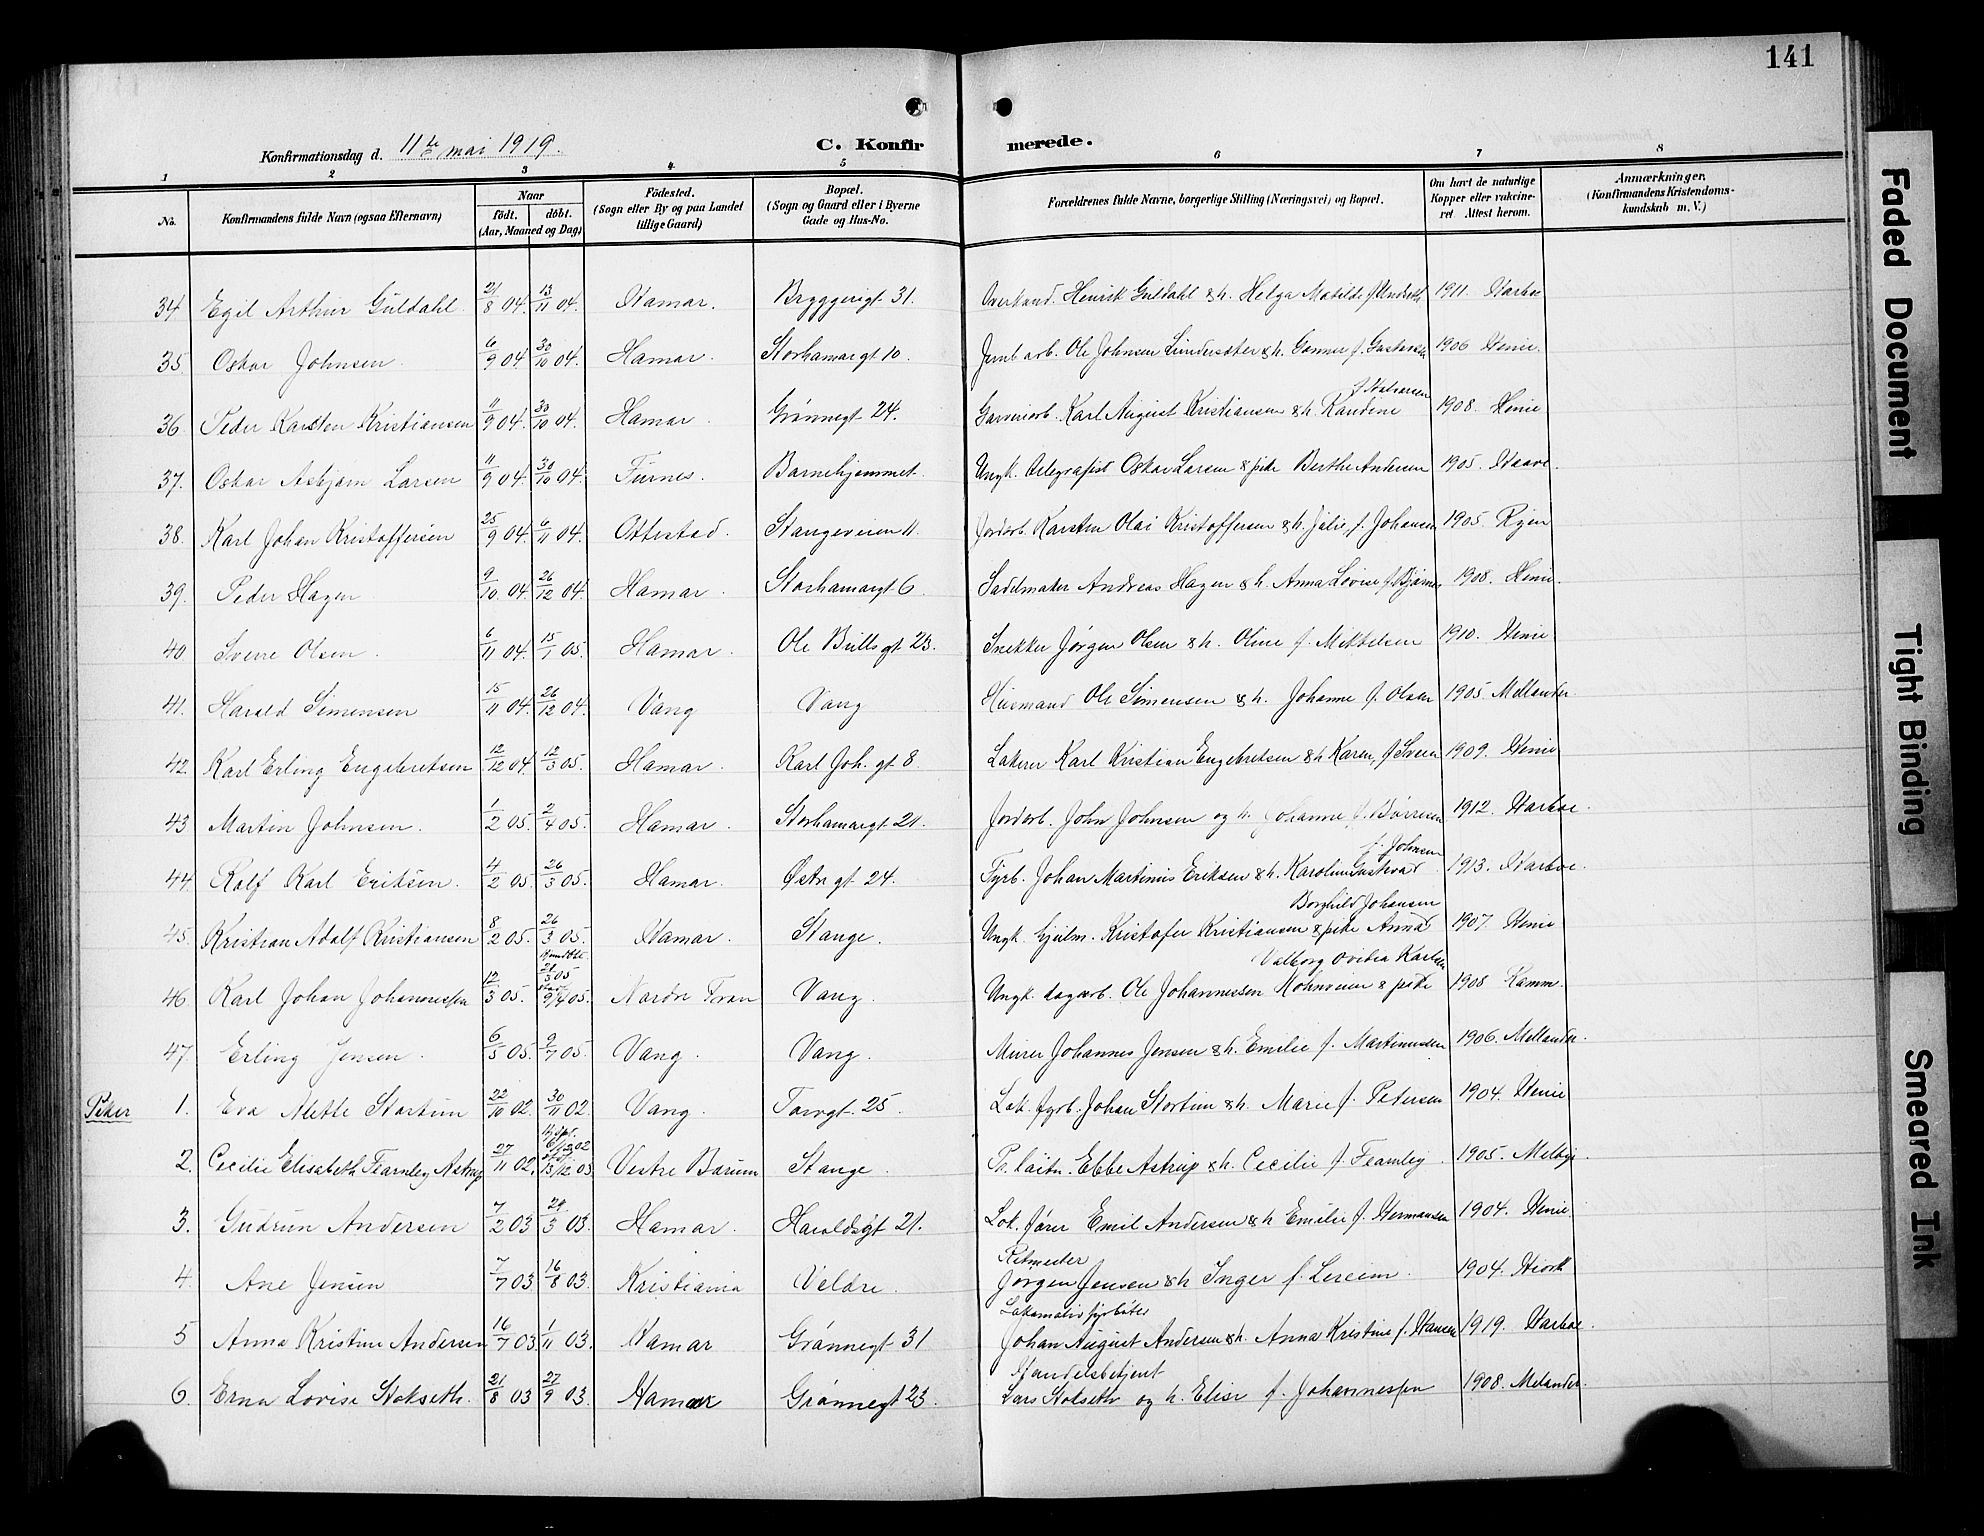 141
Konfirmationsdag d. 11te mai 1919. C. Konfirmerede.
1 2 3 4 5 6 7 8
No. Konfirmandens fulde Navn (ogsaa Efternavn) Naar født. døbt. (Aar, Maaned og Dag) Fødested. (Sogn eller By og paa Landet tillige Gaard) Bopæl. (Sogn og Gaard eller i Byerne Gade og Hus-No. Forældrenes fulde Navne, borgerlige Stilling (Næringsvei) og Bopæl. Om havt de naturlige Kopper eller vakcineret Attest herom. Anmærkninger. (Konfirmandens Kristendomskundskab m. V.)
34 Egil Arthur Guldahl. 21/8 04. 13/11 04. Hamar. Bryggerigt 31. Henrik Guldahl & h. Helga Matilde f. 1911. Harboe
35. Oskar Johnsen. 6/9 04 30/10 04. Hamar. Storhamargt 10. Jernb arb. Ole Johnsen & h. Gunner f. 1906 Henie.
36. Peder Karsten Kristiansen 11/9 04. 30/10 04. Hamar. Grønnegt 24. Garveriarb. Karl August Kristiansen & h. Randine f. Halvorsen 1908. Henie
37. Oskar Asbjørn Larsen 11/9 04. 30/10 04. Furnes. Barnehjemmet Ungk. Telegrafist Oskar Larsen & pike Berthe Andersen 1905.
38. Karl Johan Kristoffersen 25/9 04. 6/11 04. Ottestad. Stangeveien 11. Jordarb. Karsten Olai Kristoffersen & h. Julie f. Johansen 1905. Ryen
39. Peder Hagen 9/10 04. 26/12 04. Hamar. Storhamargt 6. Sadelmaker Andreas Hagen & h. Anna Lovise f. 1908. Henie.
40. Sverre Olsen. 6/11 04. 15/1 05. Hamar. Ole Bulls gt 23. Snekker Jørgen Olsen & h. Oline f. Mikkelsen 1910. Henie
41. Harald Simensen 15/11 04. 26/12 04. Vang Vang Husmand Ole Simensen & h. Johanne f. Olsen 1905. Mellander
42. Karl Erling Engebretsen 12/12 04. 12/3 05. Hamar. Karl Joh. gt 8 Lakerer Karl Kristian Engebretsen & h Karen, f. 1909. Henie
43 Martin Johnsen. 1/2 05. 2/4 05. Hamar. Storhamargt 21. Jordarb. John Johnsen og h. Johanne f. Børresen 1912. Harboe.
44. Rolf Karl Eriksen. 4/2 05. 26/3 05. Hamar. Østre gt 24. Fyrb. Johan Martinius Eriksen & h. Karoline f. Johnsen 1913. Harboe.
45. Kristian Adolf Kristiansen 8/2 05. 26/3 05. Hamar. Stange. Ungk. Kristofer Kristiansen & pike Anna Borghild Johansen 1907. Henie
46. Karl Johan Johannessen 12/3 05. 21/3 05 9/4 05. Nordre Fron Vang. Ungk. dagarb. Ole Johannessen & pike Valborg Ovidia Karlsen 1908 Ramm.
47. Erling Jensen. 6/5 05. 9/7 05. Vang. Vang. Murer Johannes Jensen & h. Emilie f. Martinussen 1906. Mellander.
Piker 1. Eva Alette Stortun 22/10 02. 30/11 02. Vang. Torvgt. 25. Lok. fyrb. Johan Stortun & h. Marie f. Petersen 1904. Henie
2. Cecilie Elisabeth Fearnley Astrup 27/11 02. 6/12 02 13/12 03. Vestre Bærum Stange. Pr. løitn. Ebbe Astrup & h. Cecilie f. Fearnley 1905. Melbye.
3. Gudrun Andersen 7/2 03 29/3 03. Hamar. Haraldsgt 21. Lok. fører Emil Andersen & h Emilie f. Hermansen 1904. Henie.
4. Ane Jensen 7/7 03. 16/8 03. Kristiania Veldre. Ritmester Jørgen Jensen & h Inger f. 1904.
5 Anna Kristine Andersen 16/7 03 1/11 03. Hamar Grønnegt 31 Lokomotivfyrbøter Johan August Andersen & h. Anna Kristine f. Hansen 1919. Harboe.
6. Erna Lovise Stokseth. 21/8 03 27/9 03. Hamar Grønnegt 23. Handelsbetjent Lars Stokseth og h. Elise f. Johannessen 1908. Melander.
Faded Document
Tight Binding
Smeared Ink